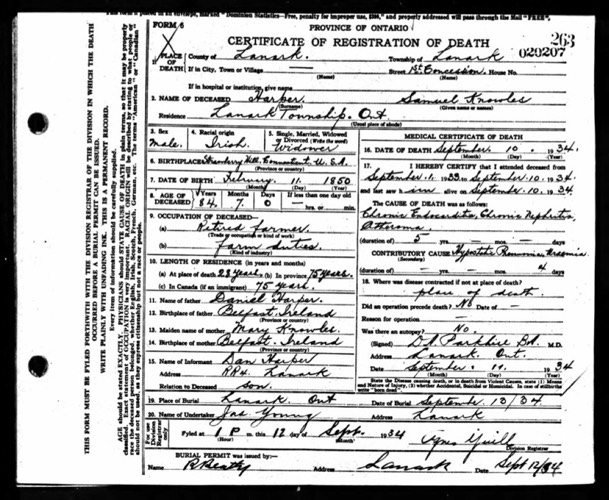 FORM 6
PROVINCE OF ONTARIO
CERTIFICATE OF REGISTRATION OF DEATH
263
029207
1. PLACE OF DEATH
County of Lanark. Township of Lanark
If in City, Town or Village (Name) Street 1st Concession. House No.
If in hospital or institution, give name
2. NAME OF DECEASED Harper (Surname) Samuel Knowles (Given name or names)
Residence Lanark Township. Ont. (Usual place of abode)
3. Sex Male.
4. Racial origin Irish.
5. Single, Married, Widowed or Divorced (Write the word) Widower
6. BIRTHPLACE Strawberry Hill, Connecticut, U.S.A. (Province or country)
7. DATE OF BIRTH February 11. 1850 (Month) (Day) (Year)
8. AGE OF DECEASED Years 84. Months 7. Days 0 If less than one day old hrs. or min.
9. OCCUPATION OF DECEASED
(a) Retired farmer
(Trade or occupation or kind of work)
(b) Farm duties.
10. LENGTH OF RESIDENCE (in years and months)
(a) At place of death 28 Years. (b) In province 75 Years.
(c) In Canada (if an immigrant) 75 Years.
11. Name of father Daniel Harper.
12. Birthplace of father Belfast, Ireland (Province or country)
13. Maiden name of mother Mary Knowles
14. Birthplace of mother Belfast, Ireland (Province or country)
15. Name of Informant Dan Harper
Address RR4. Lanark
Relation to Deceased son.
MEDICAL CERTIFICATE OF DEATH
16. DATE OF DEATH September 10. 1934. (Month) (Day) (Year)
17. I HEREBY CERTIFY that I attended deceased from
September. 1. 1933. to September. 10. 1934.
and last saw him alive on September. 10. 1934
The CAUSE OF DEATH was as follows:
Chronic Endocarditis, Chronic Nephritis,
Atheroma.
(duration of) 5 yrs. mos. days
CONTRIBUTORY CAUSE Hypostatic Pneumonia, Uraemia
(Secondary)
(duration of) yrs. mos. 4 days
18. Where was disease contracted if not at place of death?
place of death.
Did an operation precede death? No Date of
Reason for operation
Was there an autopsy? No.
(Signed) M.D.
Address Lanark. Ont.
Date September. 11. 1934 (Month) (Day) (Year)
19. Place of Burial Lanark Ont Date of Burial Septemb. 13/34
20. Name of Undertaker Jas Young Address Lanark
For use of Division Registrar only
Fyled at 1 P m. this 12 day of Sept. 1934 Agnes Yuill
(Hour) Division Registrar
BURIAL PERMIT was issued by:
Name R Beatty Address Lanark Date Sept 12/34
THIS FORM MUST BE FYLED FORTHWITH WITH THE DIVISION REGISTRAR OF THE DIVISION IN WHICH THE DEATH
OCCURRED BEFORE A BURIAL PERMIT CAN BE ISSUED.
WRITE PLAINLY WITH UNFADING INK. THIS IS A PERMANENT RECORD.
Every item of information should be carefully supplied.